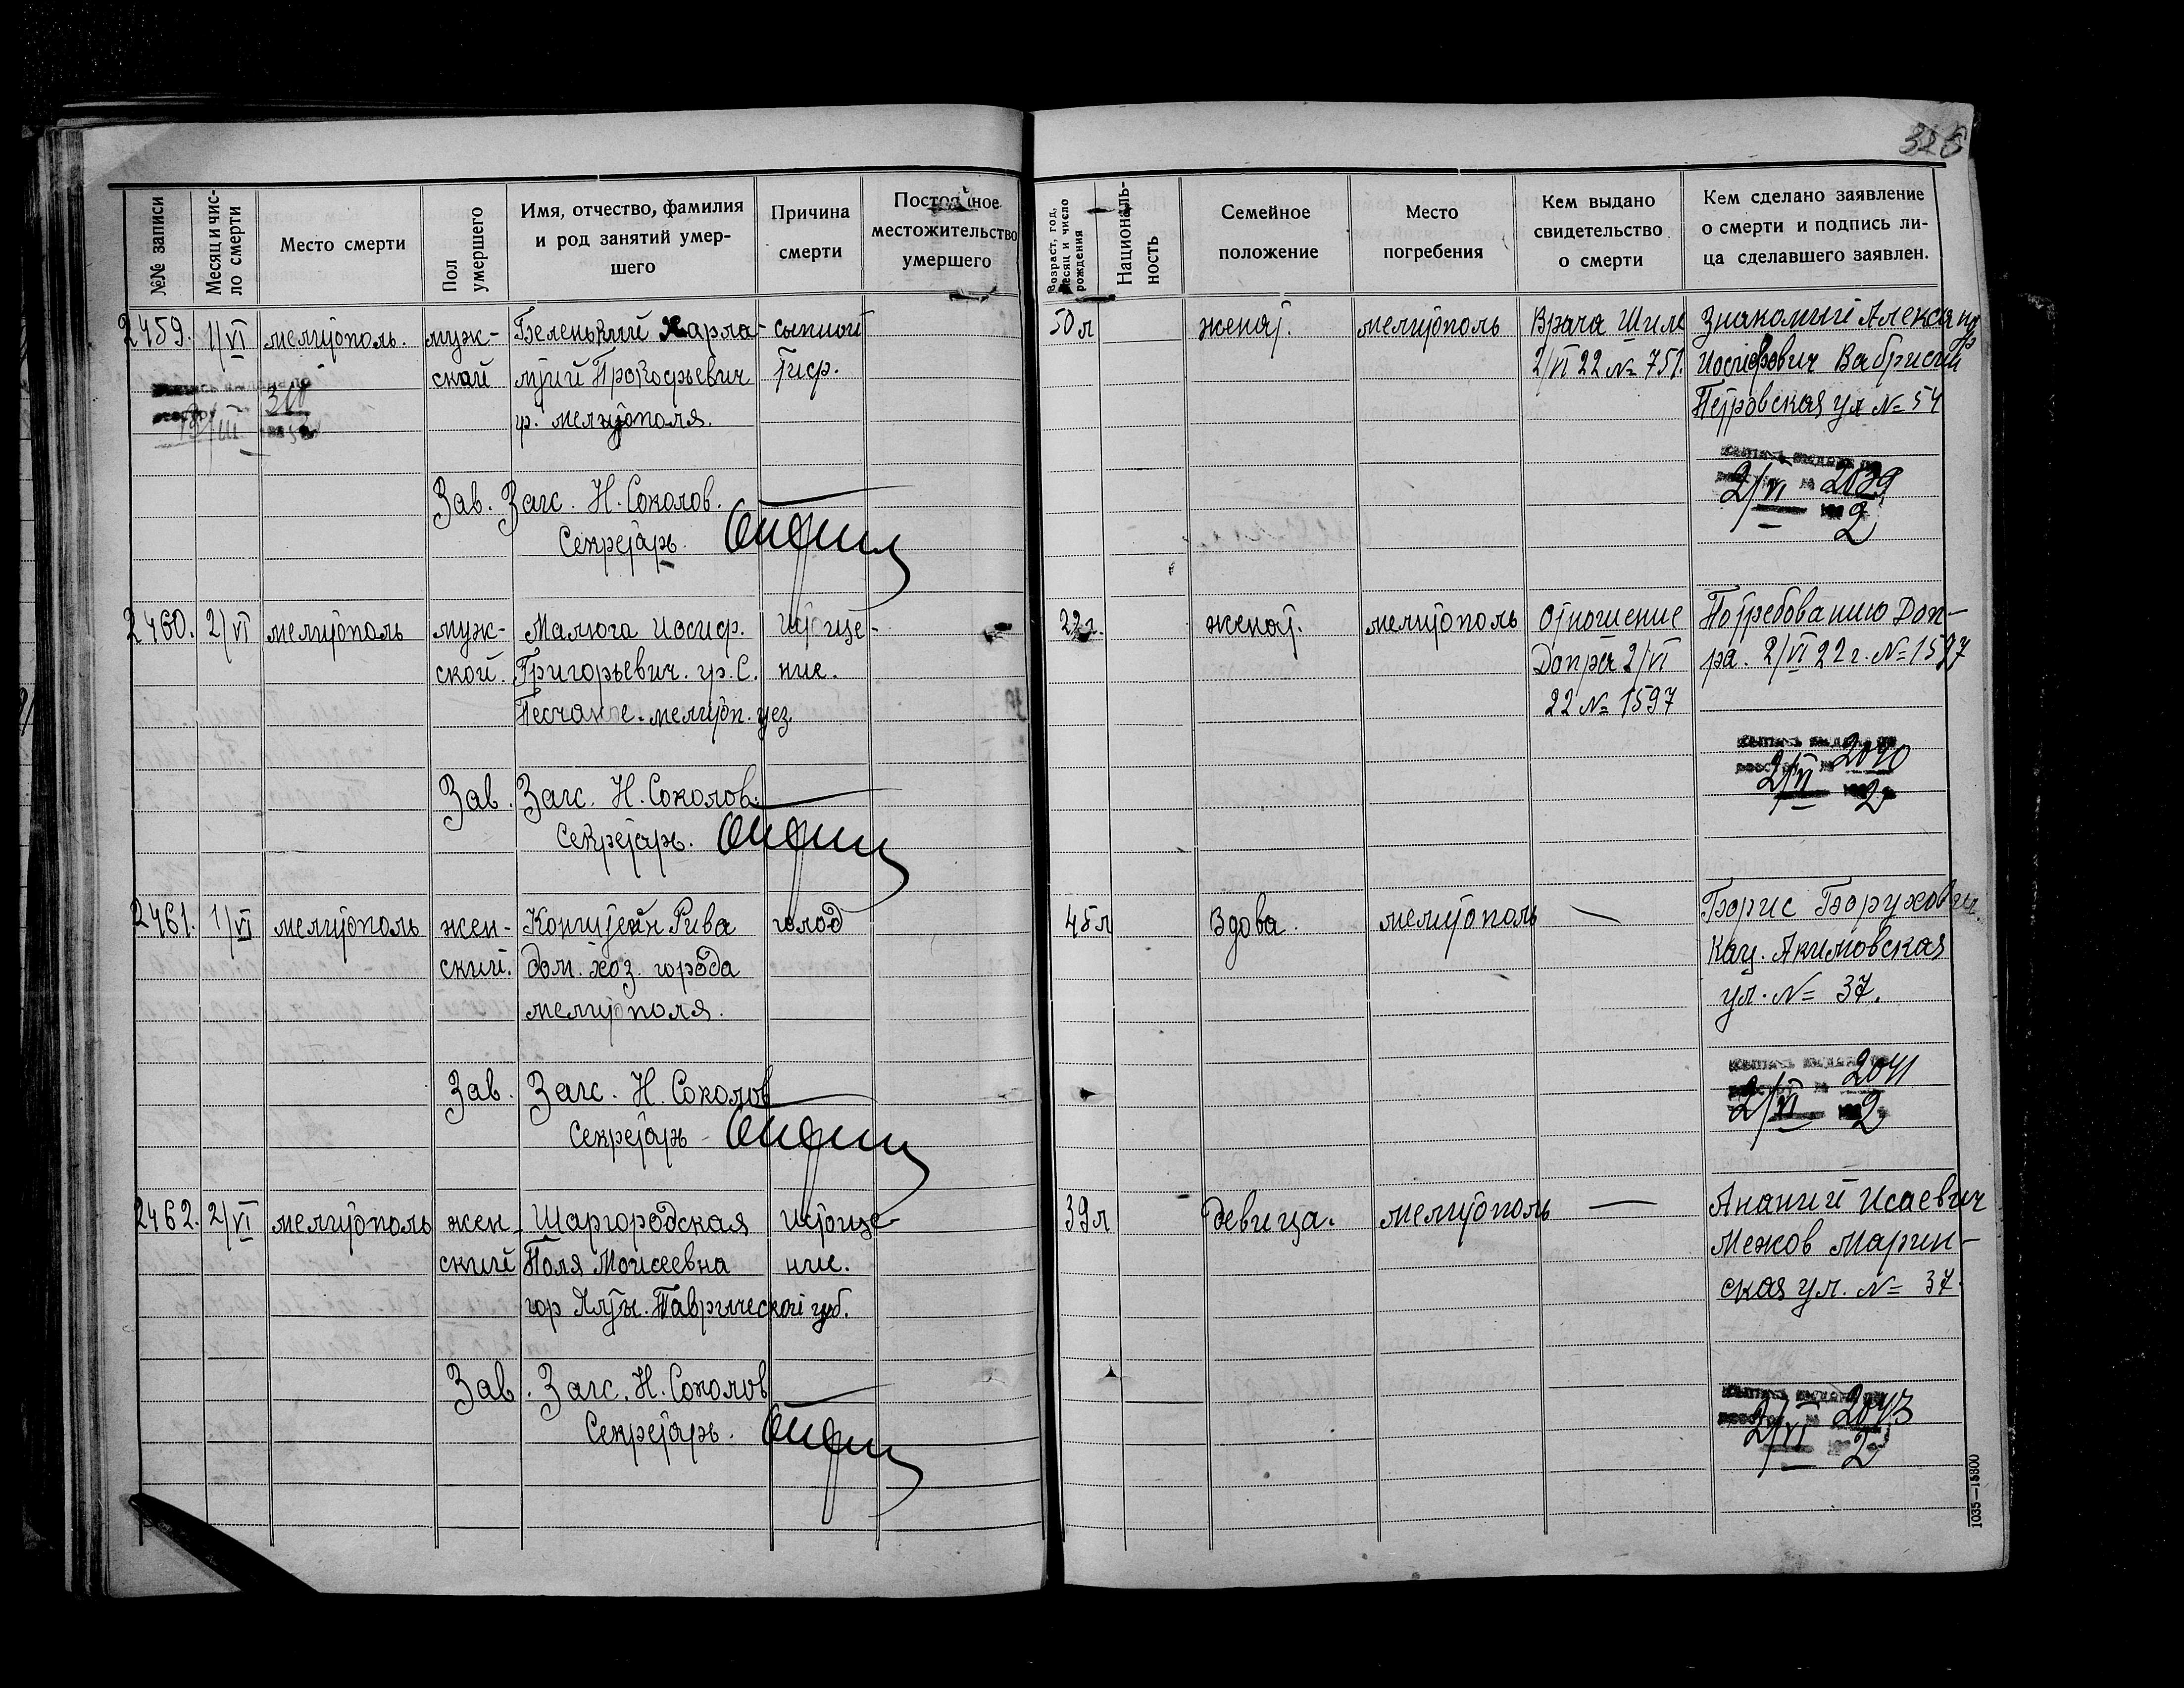 326
№№ записи
Месяц и чис-
ло смерти
Место смерти
Пол
умершего
Имя, отчество, фамилия
и род занятий умер-
шего
Причина
смерти
Постоянное
местожительство
умершего
Возраст, год,
месяц и число
рождения
Националь-
ность
Семейное
положение
Место
погребения
Кем выдано
свидетельство
о смерти
Кем сделано заявление
о смерти и подпись ли-
ца сделавшего заявлен.
2459.
1/VI
мелитополь.
муж-
ской
Беленький Харла-
мпий Прокофьевич
гр. мелитополя.
сыпной
тиф.
50 л
женат.
мелитополь
Врача Шила
2/VI 22 № 751.
Знакомий Александр
Иосифович
Петровская ул № 54
310
13/III
2/VI 2039
2
Зав. Загс. Н. Соколов.
Секретарь.
2460.
2/VI
мелитополь
муж-
ской.
Малюга Иосиф.
Григорьевич. гр. С.
Песчаное. мелитоп. уез.
Истоще-
ние.
22 г.
женат.
мелитополь
Отношение
Допра 2/VI
22 № 1597
По требованию Доп-
ра. 2/VI 22 г. № 1597
2/VI 2040
2
Зав. Загс. Н. Соколов.
Секретарь.
2461.
1/VI
мелитополь
жен-
ский.
Рива
дом. хоз. города
мелитополя.
голод
45 л
Вдова.
мелитополь
—
Борис Борухович
Кац. Акимовская
ул. № 37.
2/VI 2041
2
Зав. Загс. Н. Соколов
Секретарь
2462.
2/VI
мелитополь
жен-
ский
Шаргородская
Поля Моисеевна
гор Ялты. Таврической губ.
Истоще-
ние.
39 л
девица.
мелитополь
—
Ананий Исаевич
Межов Марин-
ская ул. № 37.
2/VI 2043
2
Зав. Загс. Н. Соколов
Секретарь.
1035—15300